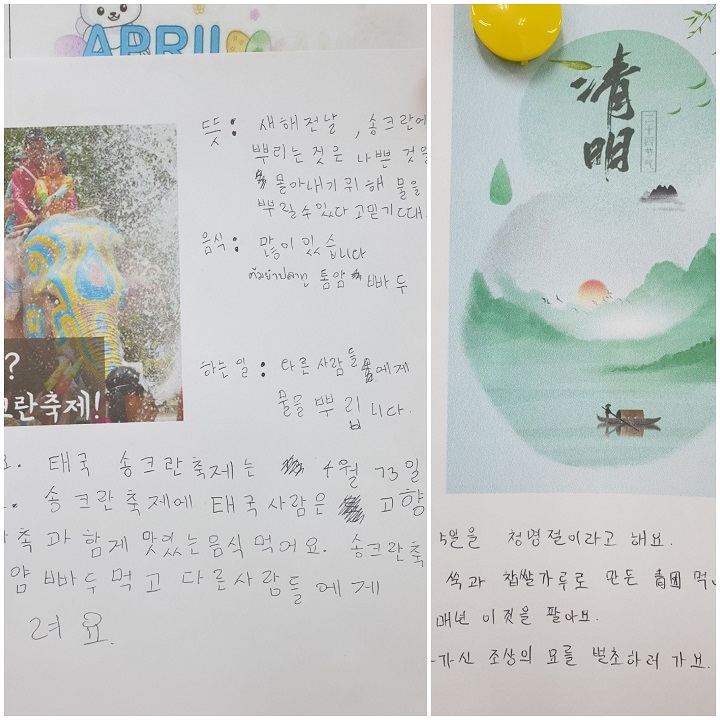 APRIL
뜻: 새해전날, 송크란에
뿌리는것은 나쁜 것을
몰아내기위해 물을
뿌릴수있다고믿기때
음식: 많이 있습니다
똠얌 빠두
하는일: 타른 사람들에게
물을 뿌립니다.
?
크란축제!
태국 송크란축제는 4월 13일
송크란축제에 태국사람은 고향
족과 함게 맛있는음식 먹어요. 송크란축
얌빠두먹고 다른사람들에게
려요.
清明
二十四节气
5일을 청명절이라고 해요.
쑥과 찹쌀가루로 만든 青团 먹
매년 이것을 팔아요.
가신 조상의 묘를 벌초하러 가요.